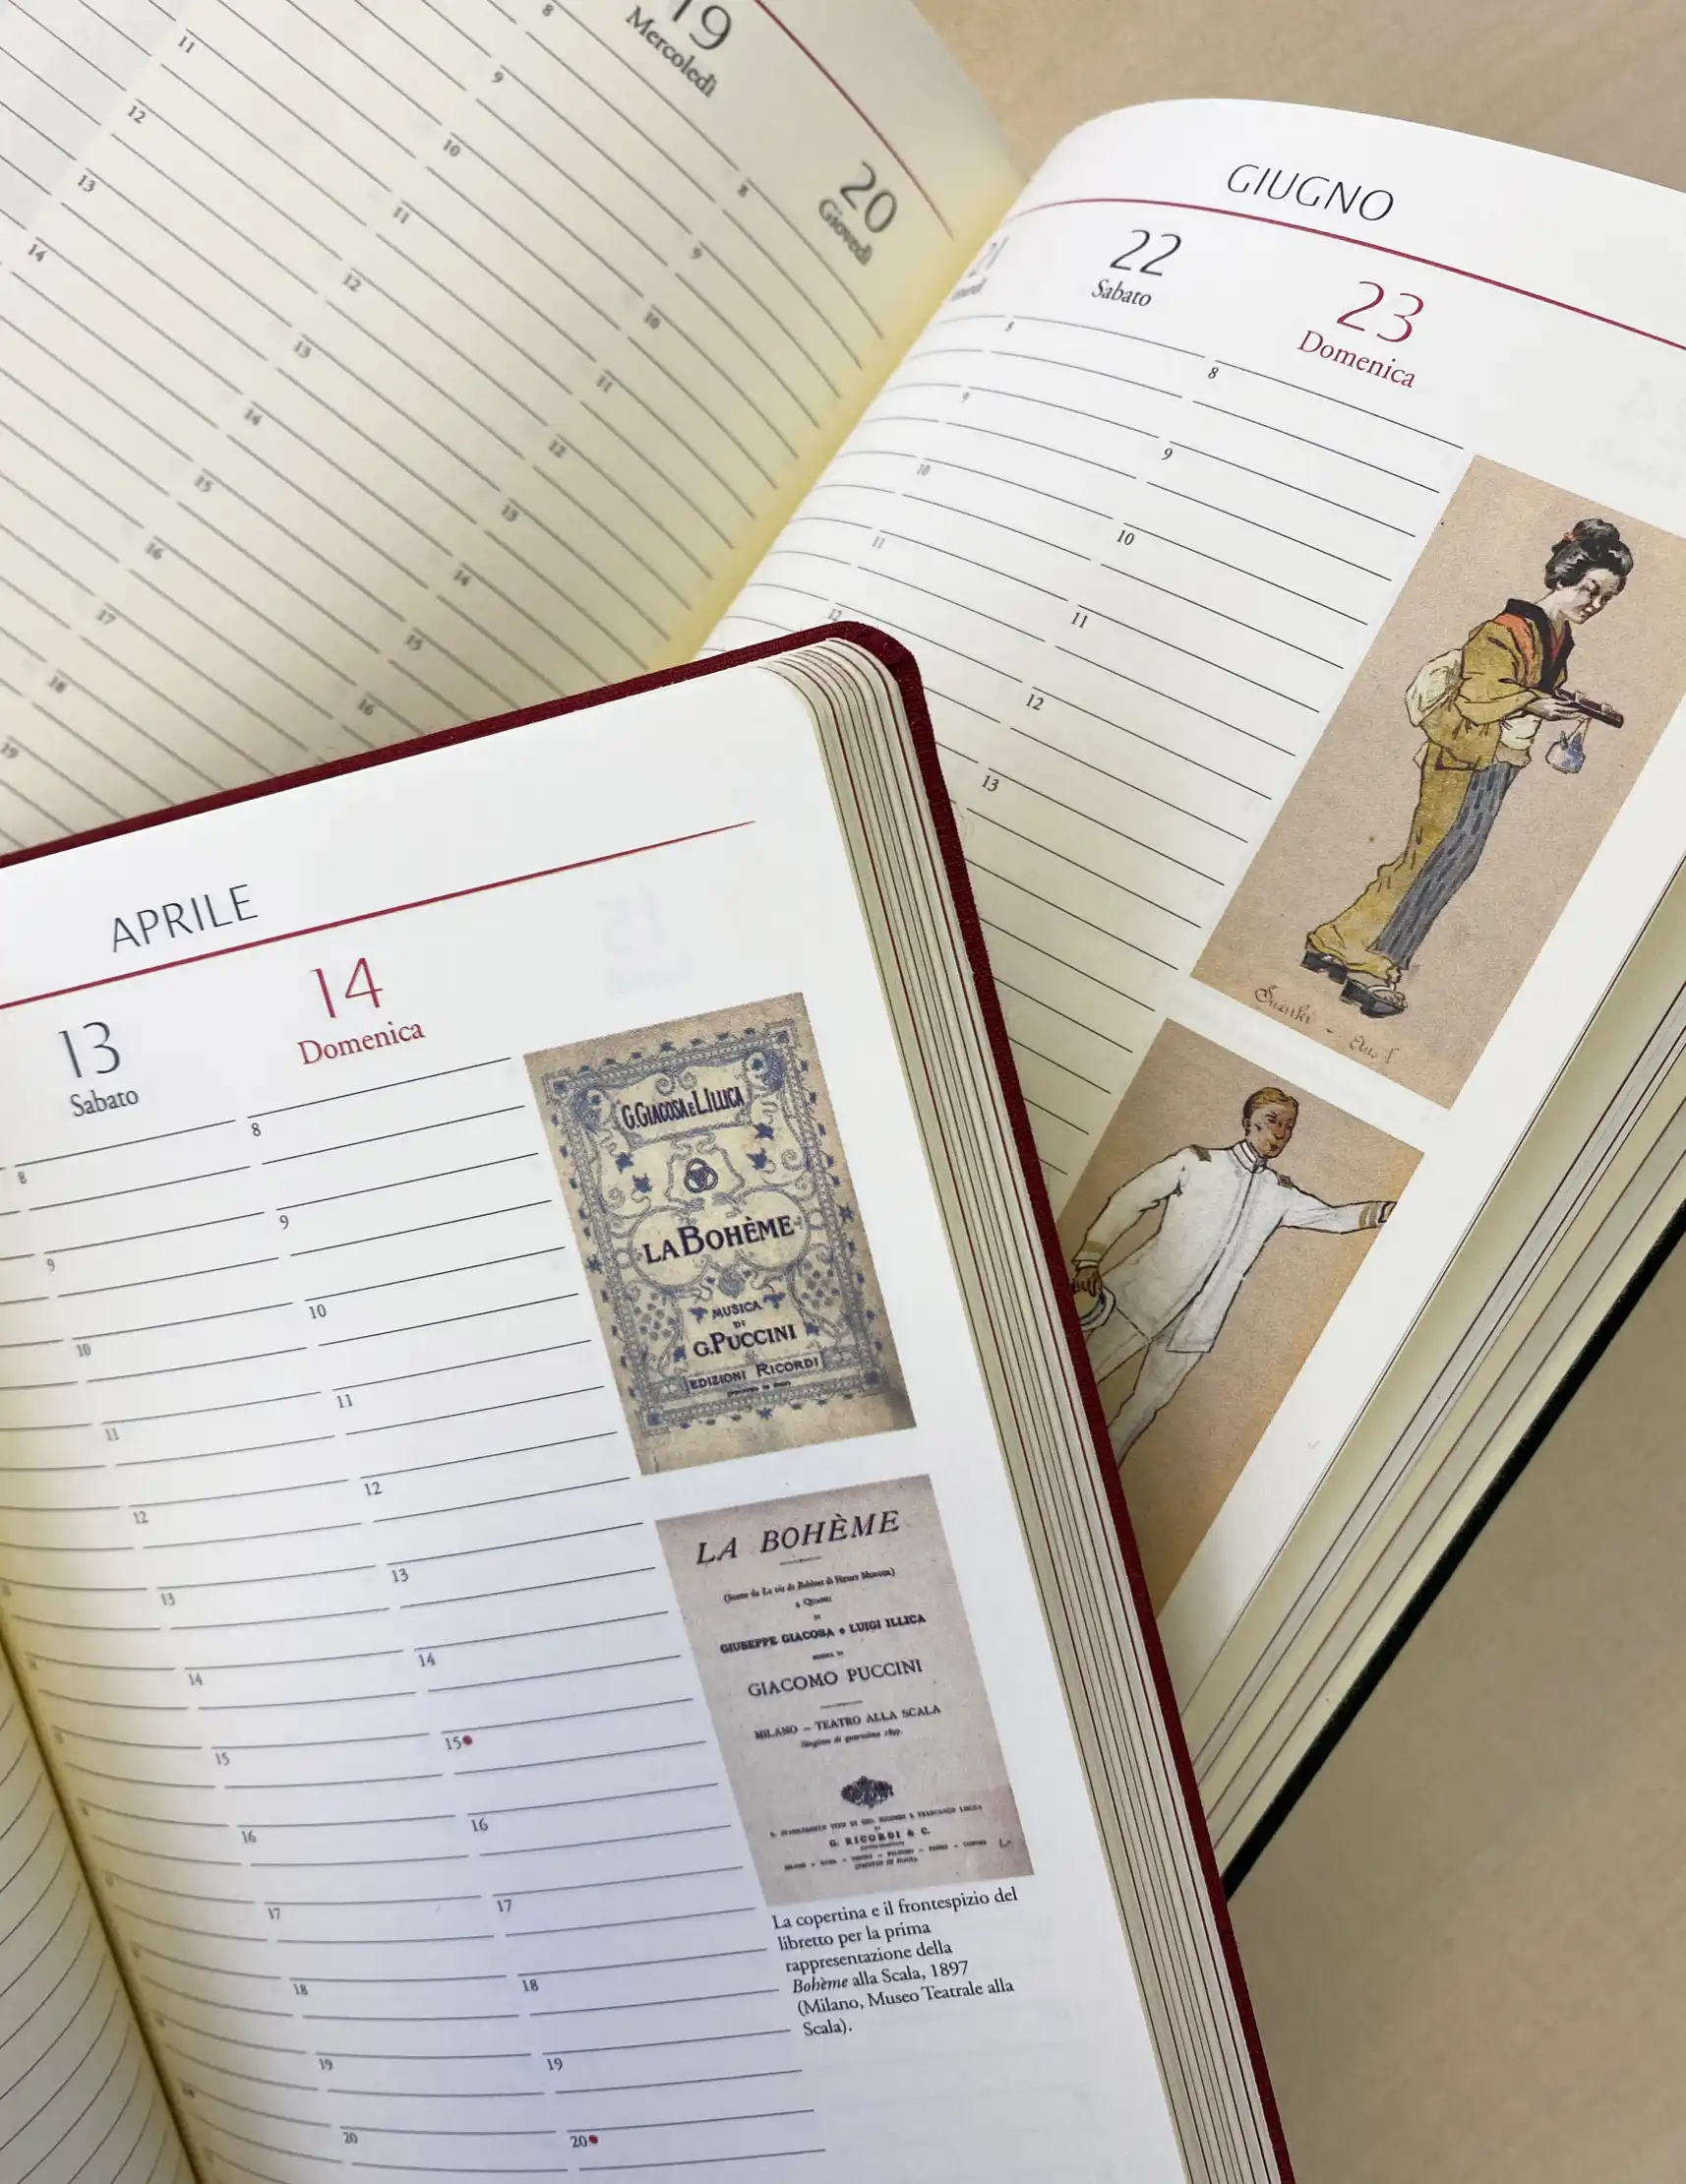 19
Mercoledì
20
Giovedì
8
9
10
11
12
13
14
15
16
11
12
13
14
15
16
17
18
19
GIUGNO
21
22
Sabato
23
Domenica
8
9
10
11
12
8
9
10
11
12
13
Suzuki - Atto I
APRILE
13
Sabato
14
Domenica
8
9
10
11
12
13
14
15
16
17
18
19
20
8
9
10
11
12
13
14
15
16
17
18
19
20
G. GIACOSA E L. ILLICA
LA BOHÈME
MUSICA
DI
G. PUCCINI
EDIZIONI RICORDI
LA BOHÈME
(Scene da La vie de Bohème di Henry Murger)
4 QUADRI
DI
GIUSEPPE GIACOSA e LUIGI ILLICA
MUSICA DI
GIACOMO PUCCINI
MILANO – TEATRO ALLA SCALA
Stagione di quaresima 1897.
G. RICORDI & C.
La copertina e il frontespizio del
libretto per la prima
rappresentazione della
Bohème alla Scala, 1897
(Milano, Museo Teatrale alla
Scala).